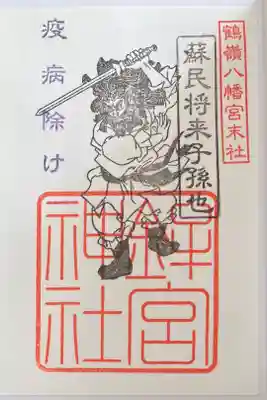 鶴嶺八幡宮末社
蘇民将来子孫也
疫病除け
鉾宮
神社